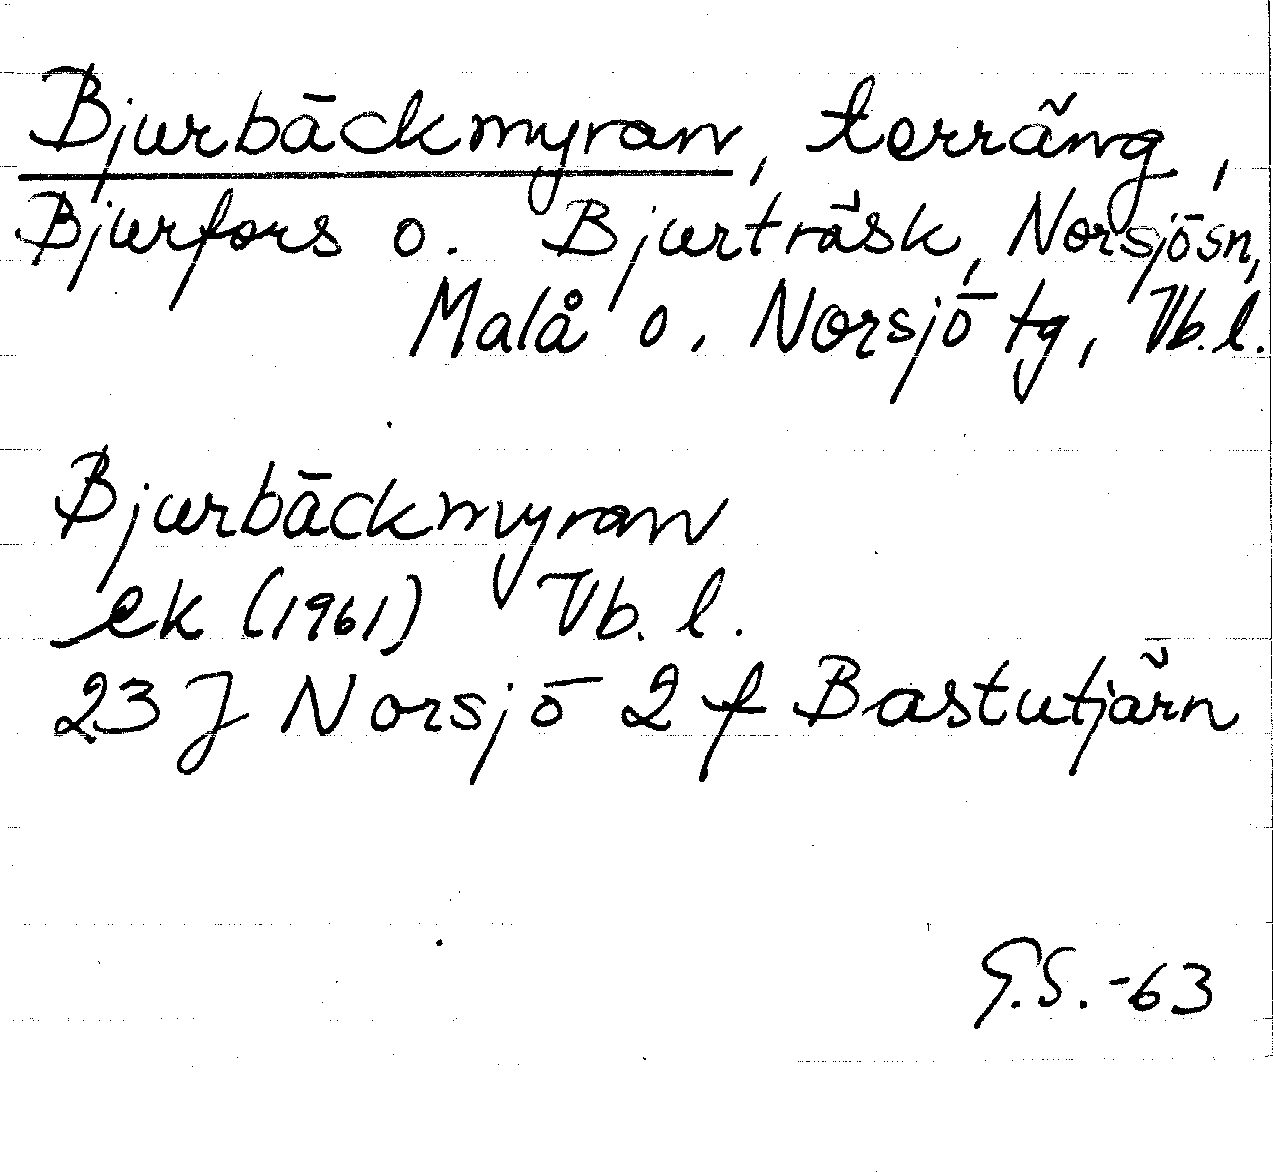 Bjurbäckmyran, terräng,
Bjurfors o. Bjurträsk, Norsjösn,
Malå o. Norsjö tg, Vb. l.
Bjurbäckmyran
ek (1961) Vb. l.
23 J Norsjö 2 f Bastutjärn
G.S. -63